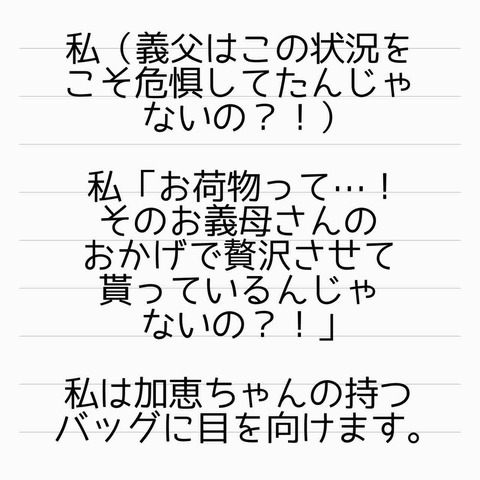 私（義父はこの状況を
こそ危惧してたんじゃ
ないの？！）
私「お荷物って…！
そのお義母さんの
おかげで贅沢させて
貰っているんじゃ
ないの？！」
私は加恵ちゃんの持つ
バッグに目を向けます。